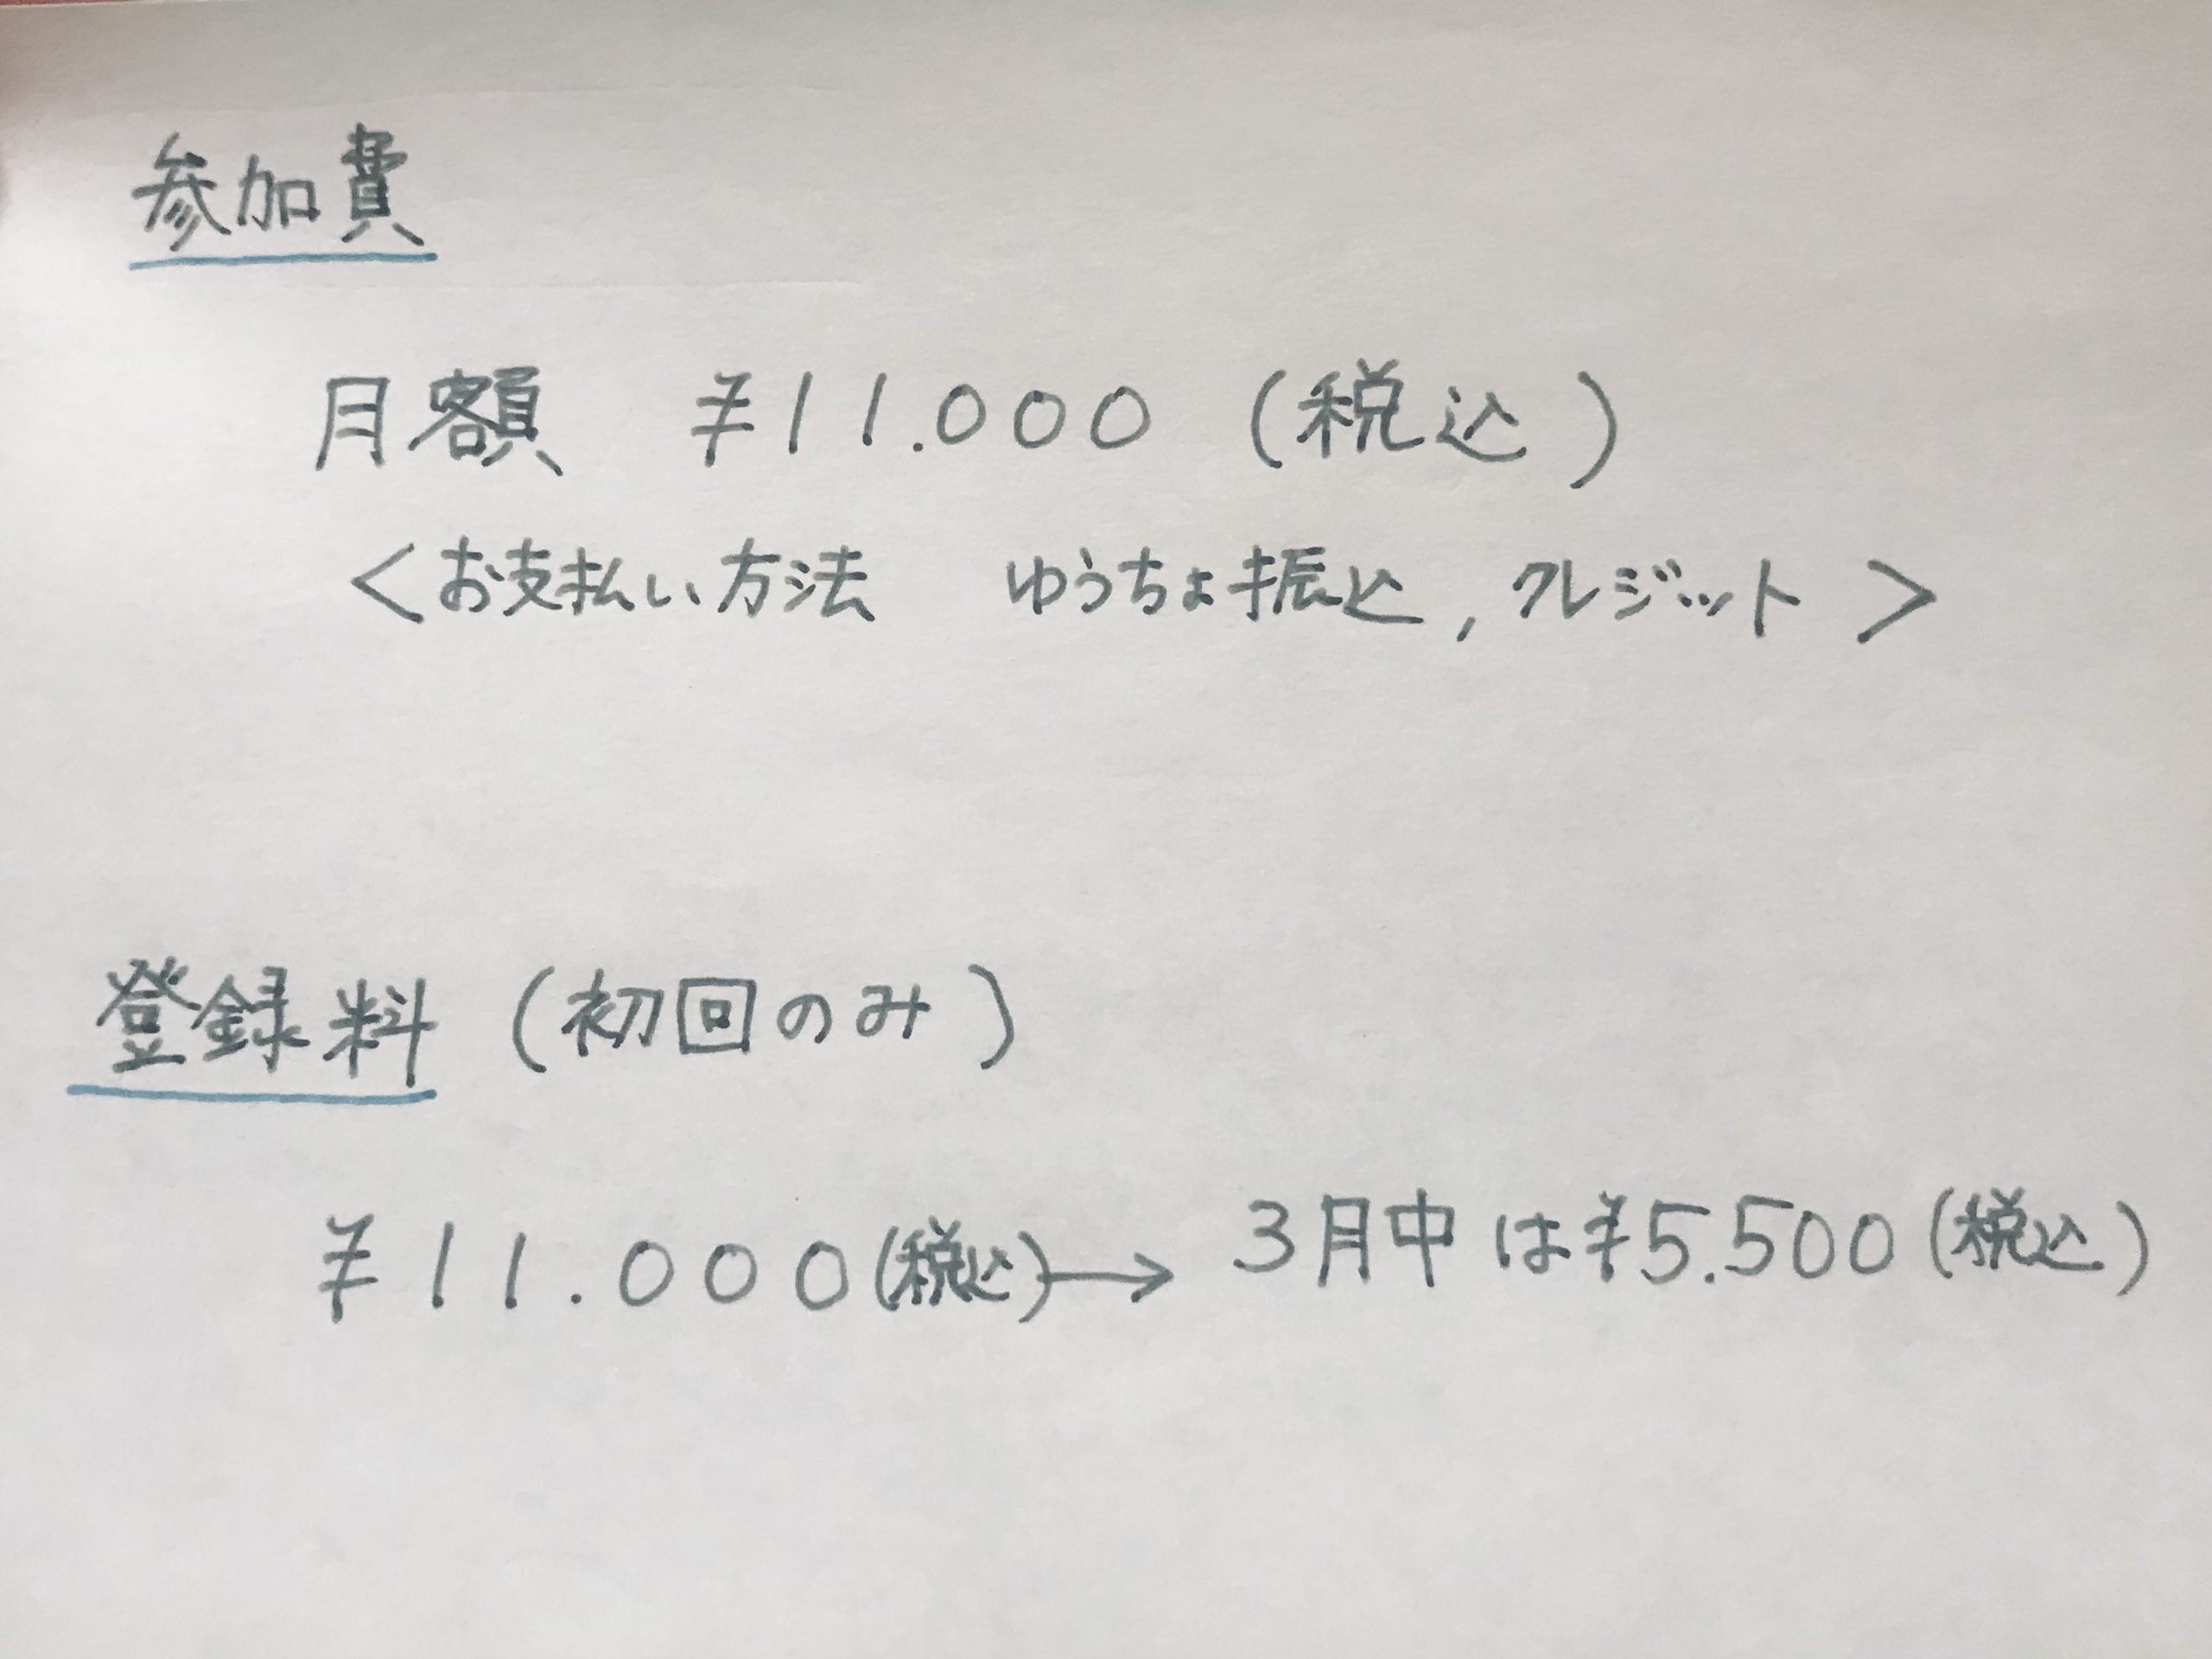 参加費
月額 ¥11.000 (税込)
<お支払い方法 ゆうちょ振込, クレジット>
登録料 (初回のみ)
¥11.000(税込)→ 3月中は¥5.500(税込)